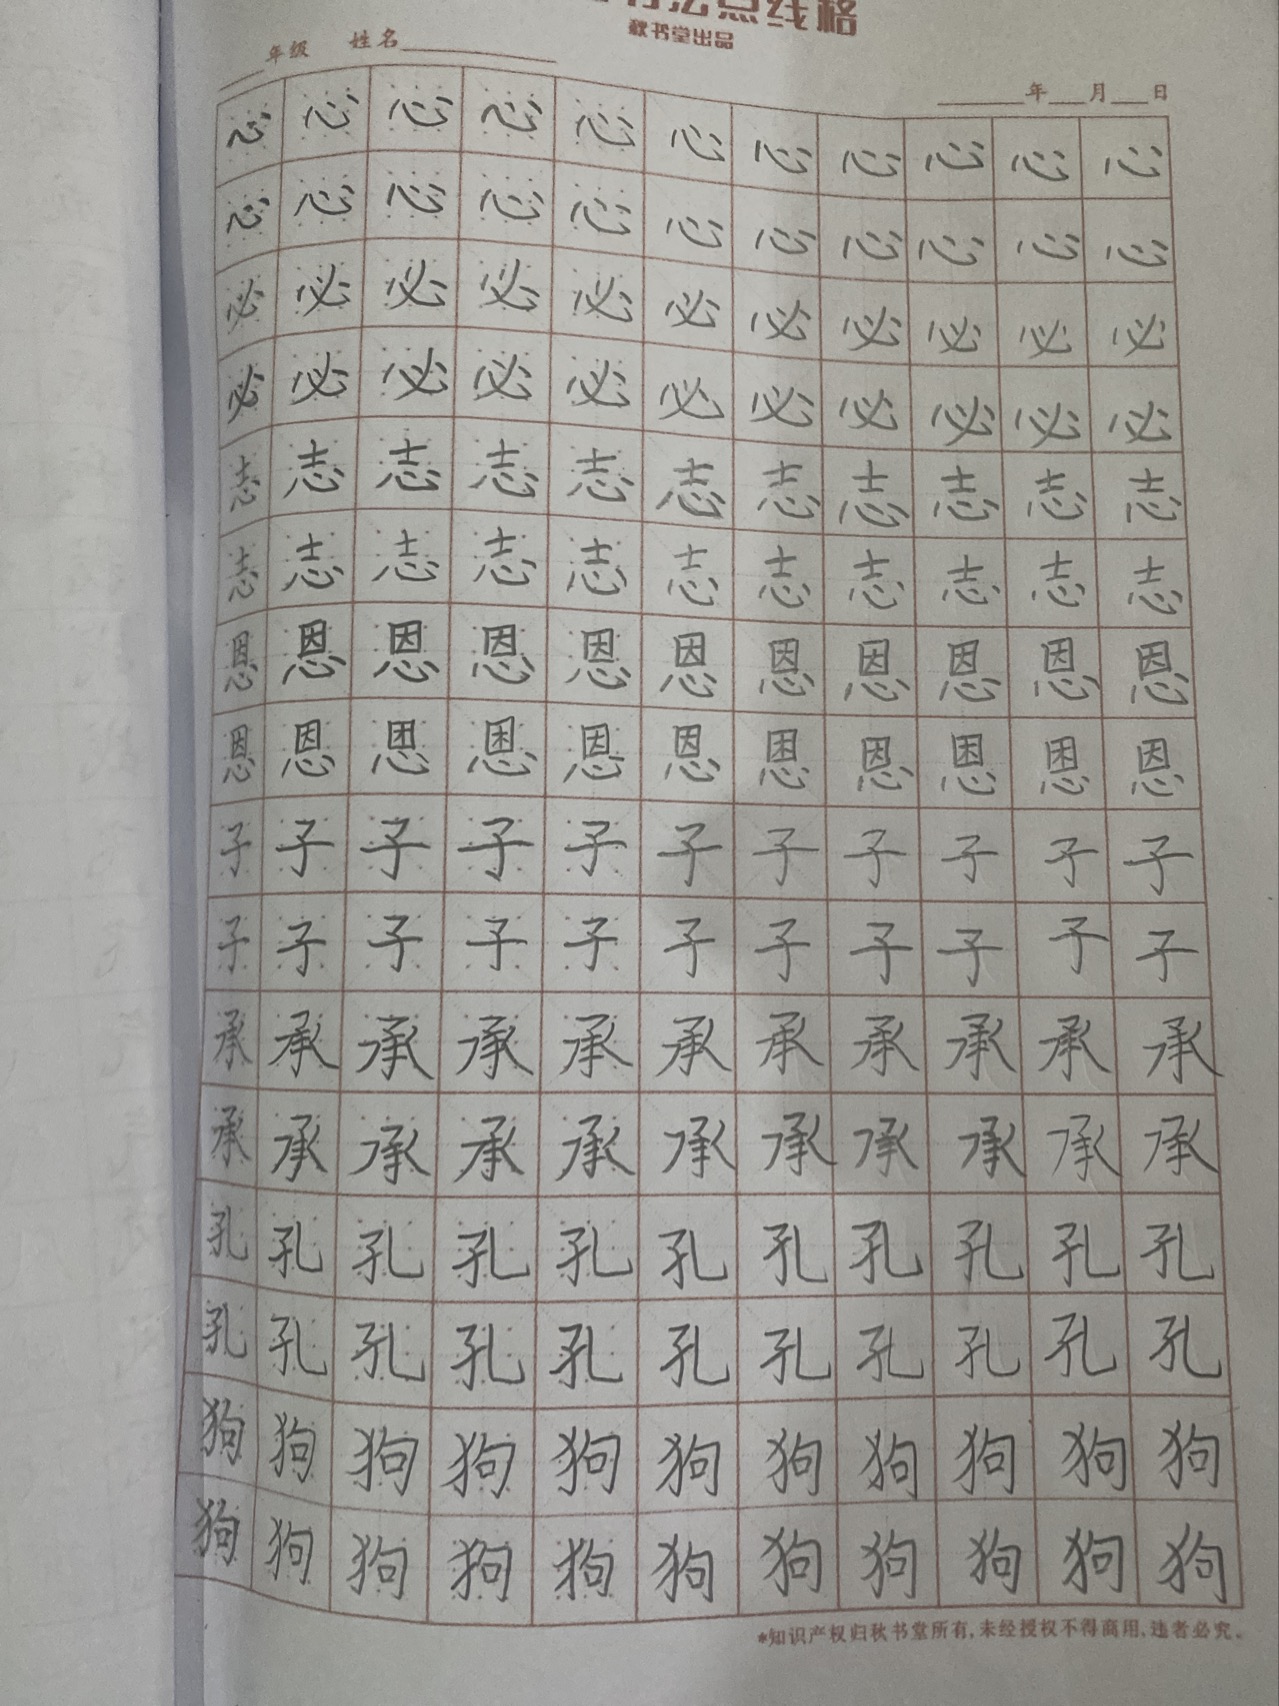 点线格
秋书堂出品
年级 姓名
年 月 日
心心心心心心心心心心心
心心心心心心心心心心心
必必必必必必必必必必必
必必必必必必必必必必必
志志志志志志志志志志志
志志志志志志志志志志志
恩恩恩恩恩恩恩恩恩恩恩
恩恩恩恩恩恩恩恩恩恩恩
子子子子子子子子子子子
子子子子子子子子子子子
承承承承承承承承承承承
承承承承承承承承承承承
孔孔孔孔孔孔孔孔孔孔孔
孔孔孔孔孔孔孔孔孔孔孔
狗狗狗狗狗狗狗狗狗狗狗
狗狗狗狗狗狗狗狗狗狗狗
*知识产权归秋书堂所有,未经授权不得商用,违者必究。